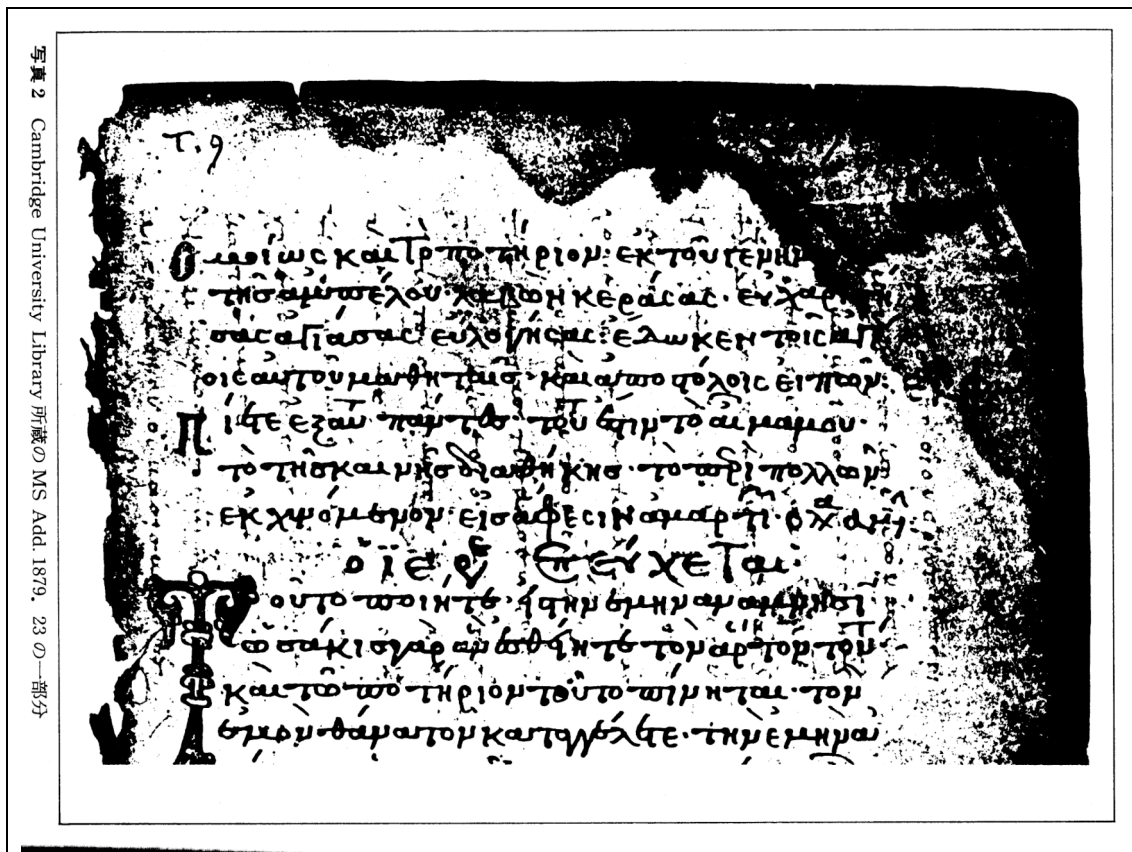 写真2 Cambridge University Library 所蔵の MS Add. 1879. 23 の一部分
T. 9
ὁμοίως καὶ τὸ ποτήριον· ἐκ τοῦ γενημ
τῆς ἀμπέλου· λαβὼν κεράσας· εὐχαρι
σας ἁγιάσας εὐλογήσας· ἔδωκεν τοῖς ἁγί
οις αὐτοῦ μαθηταῖς· καὶ ἀποστόλοις εἰπών·
πίετε ἐξ αὐτ πάντες· τοῦτ ἐστιν τὸ αἷμά μου·
τὸ τῆς καινῆς διαθήκης· τὸ περὶ πολλῶν
ἐκχυνόμενον· εἰς ἄφεσιν ἁμαρτι·
ὁ ἱερ ἐπεύχεται·
Τοῦτο ποιῆτε· εἰς τὴν ἐμὴν ἀνάμνησι
ὡσάκις γὰρ ἂν ἐσθίητε τὸν ἄρτον τοῦτ
καὶ τὸ ποτήριον τοῦτο πίνηται· τὸν
ἐμὸν θάνατον καταγγέλετε· τὴν ἐμὴν ἀν